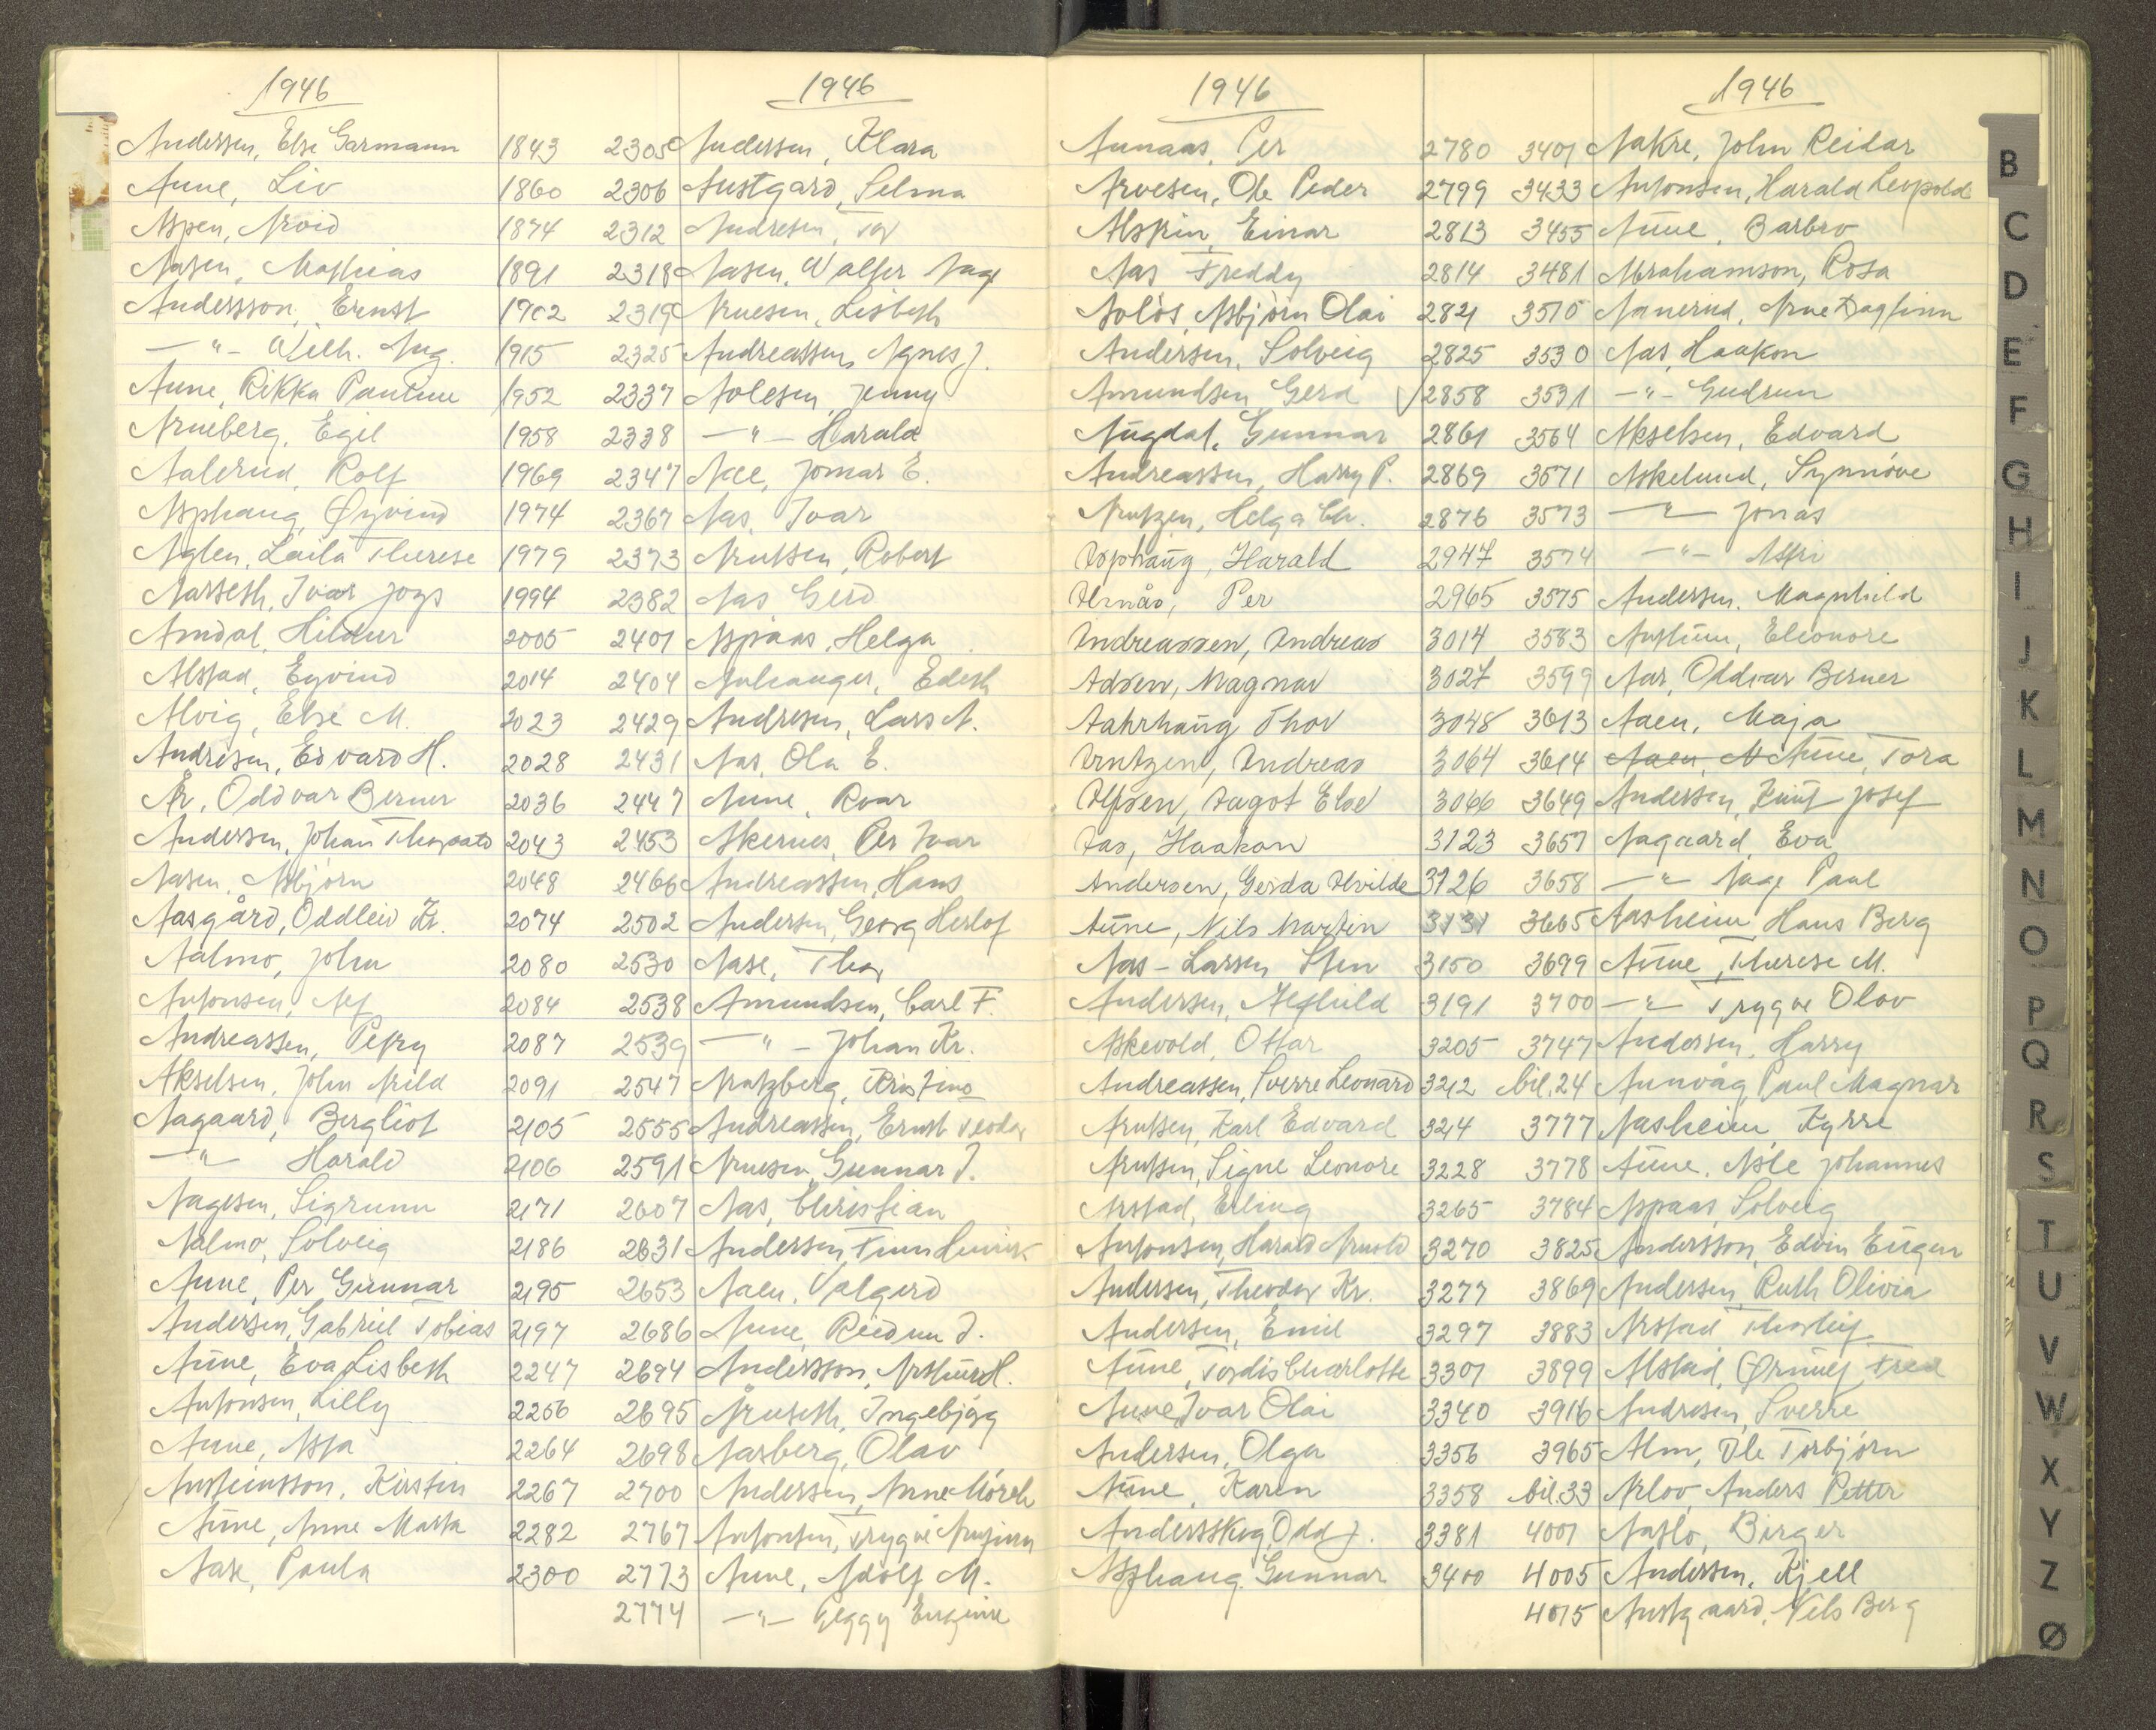 1946
Andersen, Else Garmann 1843
Aune, Liv 1860
Aspen, Arvid 1874
Aasen, Mathias 1891
Andersson, Ernst 1902
—"— Wilh. Aug. 1915
Aune, Rikka Pauline 1952
Arneberg, Egil 1958
Aalerud, Rolf 1969
Asphaug, Øyvind 1974
Aglen, Laila Therese 1979
Aarseth, Ivar 1994
Amdal, Hildur 2005
Alstad, Eyvind 2014
Alvig, Else M. 2023
Andresen, Edvard H. 2028
År, Oddvar Berner 2036
Andersen, Johan 2043
Aasen, Asbjørn 2048
Aasgård, Oddleiv Kr. 2074
Aalmo, John 2080
Antonsen, Alf 2084
Andreassen, Petry 2087
Akselsen, John Arild 2091
Aagaard, Bergliot 2105
—"— Harald 2106
Aagesen, Sigrunn 2171
Aalmo, Solveig 2186
Aune, Per Gunnar 2195
Andersen, Gabriel Tobias 2197
Aune, Eva Lisbeth 2247
Antonsen, Lilly 2256
Aune, Asta 2264
Kirstin 2267
Aune, Anne Marta 2282
Aase, Paula 2300
1946
2305 Andersen, Klara
2306 Austgard, Selma
2312 Andresen, Tor
2318 Aasen, Walter Aage
2319 Arnesen, Lisbeth
2325 Andreassen, Agnes J.
2337 Aolesen, Jenny
2338 —"— Harald
2347 Aee, Jomar E.
2367 Aas, Ivar
2373 Arntsen, Robert
2382 Aas, Gerd
2401 Aspaas, Helga
2404 Edith
2429 Andresen, Lars A.
2431 Aas, Ola E.
2447 Aune, Roar
2453 Akernes, Per Ivar
2466 Andreassen, Hans
2502 Andersen, Georg Herlof
2530 Aase, Thor
2538 Amundsen, Carl F.
2539 —"— Johan Kr.
2547 Arntzberg, Kristine
2555 Andreassen, Ernst Teodor
2591 Arnesen, Gunnar J.
2607 Aas, Christian
2631 Andersen, Finn Henrik
2653 Aaen, Valgerd
2686 Aune, Reidun J.
2694 Andersson, Arthur H.
2695 Årseth, Ingebjørg
2698 Aasberg, Olav
2700 Andersen, Arne Mørch
2767 Antonsen, Trygve Arnfinn
2773 Aune, Adolf M.
2774 —"— Peggy Eugenie
1946
Aunaas, Per 2780
Arvesen, Ole Peder 2799
Alstrin, Einar 2813
Aas Freddy 2814
Solös, Asbjørn Olai 2821
Andersen, Solveig 2825
Amundsen Gerd √2858
Augdal, Gunnar 2861
Andreassen, Harry P. 2869
Arntzen, Helga Chr. 2876
Asphaug, Harald 2947
Almås, Per 2965
Andreassen, Andreas 3014
Adsen, Magnar 3027
Aahrhaug Thor 3048
Arntzen, Andreas 3064
Alfsen, Aagot Else 3066
Aas, Haakon 3123
Andersen, Gerda Alvilde 3126
Aune, Nils Martin 3131
Aas-Larsen Sten 3150
Andersen, Alfhild 3191
Askevold, Ottar 3205
Andreassen, Sverre Leonard 3212
Arntsen, Karl Edvard 3214
Arntsen, Signe Leonore 3228
Arstad, Erling 3265
Antonsen, Harald Arnold 3270
Andersen, Theodor Kr. 3277
Andersen, Emil 3297
Aune, Tordis Charlotte 3301
Aune Ivar Olai 3340
Andersen, Olga 3356
Aune, Karen 3358
Andersskog, Odd J. 3381
Asphaug Gunnar 3400
1946
3401 Aakre, John Reidar
3433 Antonsen, Harald Leopold
3455 Aune, Barbro
3481 Abrahamson, Rosa
3510 Aanerud, Arne Dagfinn
3530 Aas, Haakon
3531 —"— Gudrun
3564 Akselsen, Edvard
3571 Askelund, Synnöve
3573 —"— Jonas
3574 —"— Astri
3575 Andersen, Magnhild
3583 Eleonore
3599 Aar, Oddvar Berner
3613 Aaen, Maja
3614 Aaen, A Aune, Tora
3649 Andersen, Knut Josef
3657 Aagaard, Eva
3658 —"— Aage Paul
3665 Aasheim Hans Berg
3699 Aune, Therese M.
3700 —"— Trygve Olov
3747 Andersen, Harry
bil.24 Aunvåg, Paul Magnar
3777 Aasheim, Kyrre
3778 Aune, Atle Johannes
3784 Aspaas, Solveig
3825 Andersson, Edvin Eugen
3869 Andersen, Ruth Olivia
3883 Arstad Thorleif
3899 Alstad, Ørnulf Fred
3916 Andresen, Sverre
3965 Alm, Ole Torbjørn
bil.33 Arlov, Anders Petter
4001 Aaslo, Birger
4005 Andersen, Kjell
4015 Austgaard, Nils Berg
B
C
D
E
F
G
H
I
J
K
L
M
N
O
P
Q
R
S
T
U
V
W
X
Y
Z
Ø